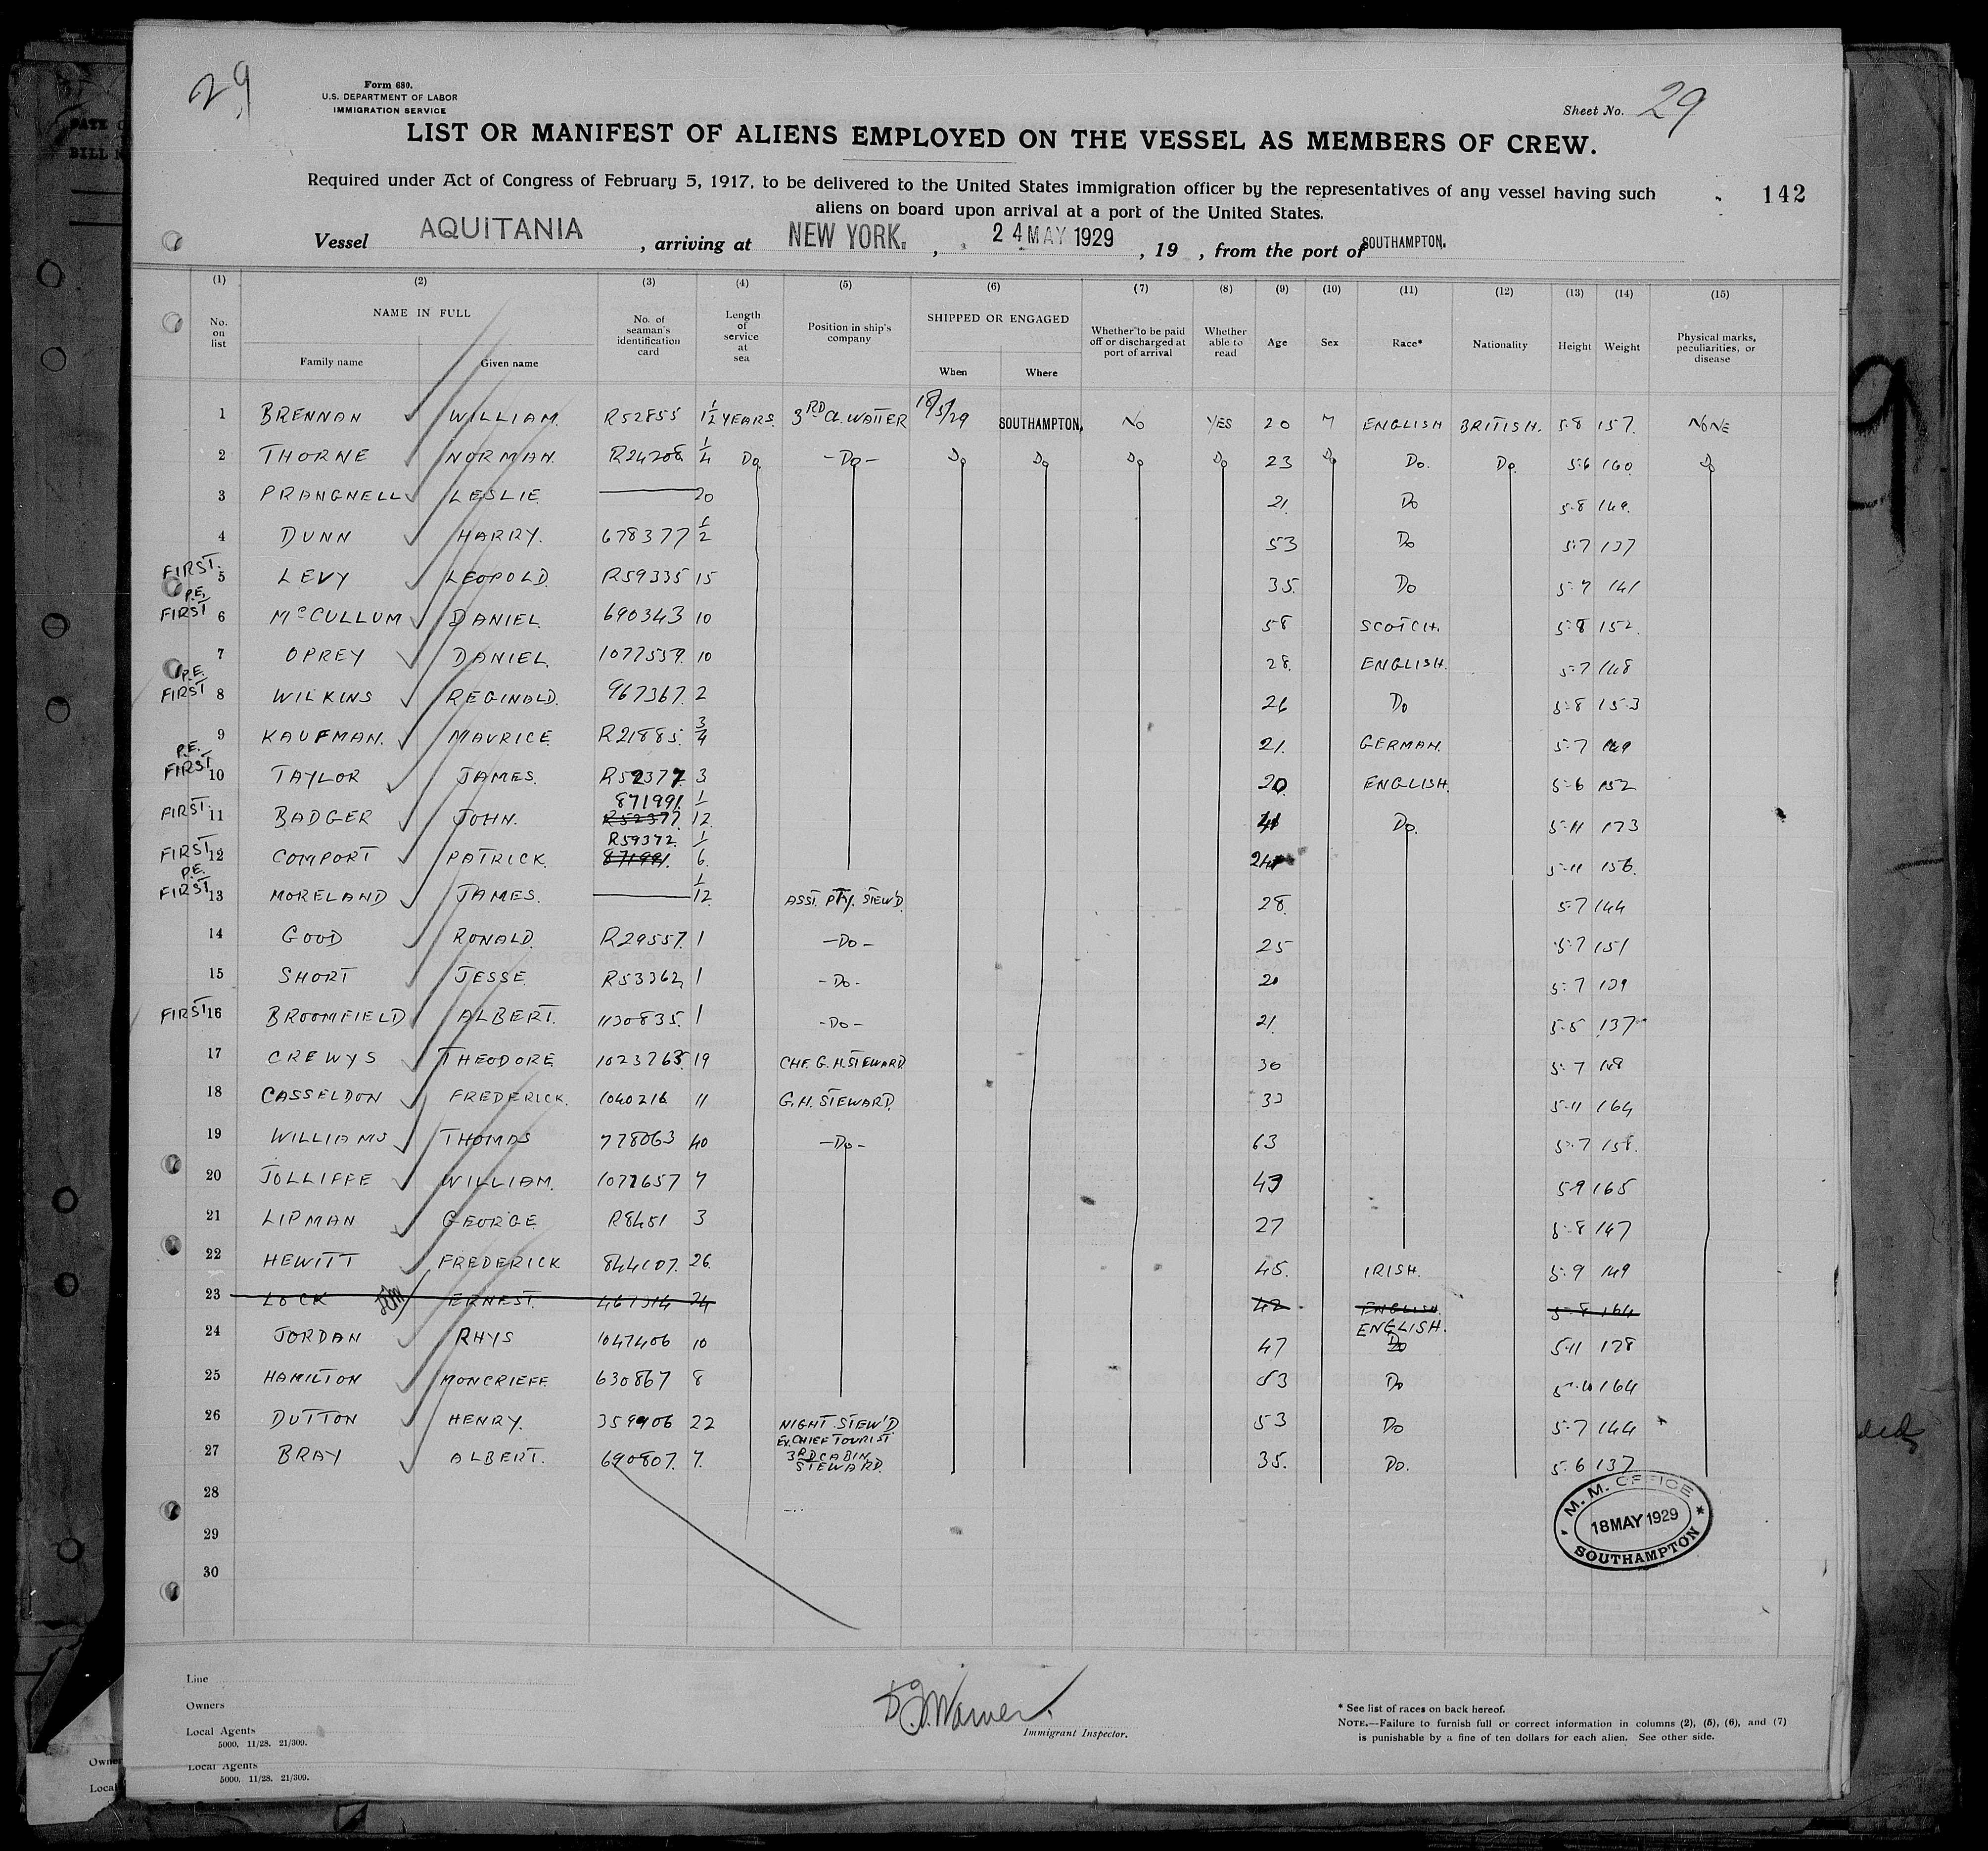 29
Form 680.
U.S. DEPARTMENT OF LABOR
IMMIGRATION SERVICE
Sheet No. 29
LIST OR MANIFEST OF ALIENS EMPLOYED ON THE VESSEL AS MEMBERS OF CREW.
Required under Act of Congress of February 5, 1917, to be delivered to the United States immigration officer by the representatives of any vessel having such
aliens on board upon arrival at a port of the United States.
142
Vessel AQUITANIA, arriving at NEW YORK., 24 MAY 1929, 19 , from the port of SOUTHAMPTON.
(1) (2) (3) (4) (5) (6) (7) (8) (9) (10) (11) (12) (13) (14) (15)
No. on list NAME IN FULL Family name Given name No. of seaman's identification card Length of service at sea Position in ship's company SHIPPED OR ENGAGED When Where Whether to be paid off or discharged at port of arrival Whether able to read Age Sex Race* Nationality Height Weight Physical marks, peculiarities, or disease
1 BRENNAN WILLIAM. R52855 1½ YEARS. 3RD CL. WAITER 18/5/29 SOUTHAMPTON. NO YES 20 M ENGLISH BRITISH. 5-8 157. NONE
2 THORNE NORMAN. R24208 1/4 Do -Do- Do Do Do Do 23 Do Do. Do. 5:6 160. Do
3 PRANGNELL LESLIE 20 21. Do 5-8 149.
4 DUNN HARRY. 678377 1/2 53 Do 5:7 137
FIRST. 5 LEVY LEOPOLD. R59335 15 35. Do 5-7 141
P.E. FIRST 6 McCULLUM DANIEL. 690343 10 58 SCOTCH. 5:8 152.
7 OPREY DANIEL. 1077559. 10 28. ENGLISH. 5-7 148
P.E. FIRST 8 WILKINS REGINALD. 967367. 2 26 Do 5:8 153
9 KAUFMAN. MAURICE R21885. 3/4 21. GERMAN. 5-7 149
P.E. FIRST 10 TAYLOR JAMES. R52377 3 20. ENGLISH. 5-6 152
FIRST. 11 BADGER JOHN. 871991. R52377. 1/12. 41 Do. 5-11 173
FIRST 12 COMPORT PATRICK. R59372. 871991. 1/6. 24 5-11 156.
P.E. FIRST 13 MORELAND JAMES. 1/12. ASST. PTY. STEW'D. 28. 5-7 144
14 GOOD RONALD. R29557. 1 -Do- 25 5:7 151
15 SHORT JESSE. R53362 1 -Do- 20 5:7 139
FIRST 16 BROOMFIELD ALBERT. 1130835. 1 -Do- 21. 5-5 137
17 CREWYS THEODORE 1023265. 19 CHF. G.H. STEWARD. 30 5:7 148
18 CASSELDON FREDERICK. 1040216 11 G.H. STEWARD. 33 5-11 164
19 WILLIAMS THOMAS 778063 40 -Do- 63 5:7 158.
20 JOLLIFFE WILLIAM. 1077657 7 43 5-9 165
21 LIPMAN GEORGE R8451 3 27 5-8 147
22 HEWITT FREDERICK 844107. 26. 45. IRISH. 5:9 149
23 LOCK ERNEST. 467314 24 42 ENGLISH. 5-8 164
24 JORDAN RHYS 1047406 10 47 ENGLISH. Do 5-11 178
25 HAMILTON MONCRIEFF. 630867 8 53 Do 5-10 164
26 DUTTON HENRY. 359906 22 NIGHT STEW'D. 53 Do 5-7 144
27 BRAY ALBERT. 690807. 7. Ex. CHIEF TOURIST 3RD CABIN STEWARD. 35. Do. 5:6 137
28
29
30
M. M. OFFICE
18 MAY 1929
SOUTHAMPTON
Line
Owners
Local Agents
5000. 11/28. 21/309.
Immigrant Inspector.
* See list of races on back hereof.
NOTE.—Failure to furnish full or correct information in columns (2), (5), (6), and (7)
is punishable by a fine of ten dollars for each alien. See other side.
Local Agents
5000. 11/28. 21/309.